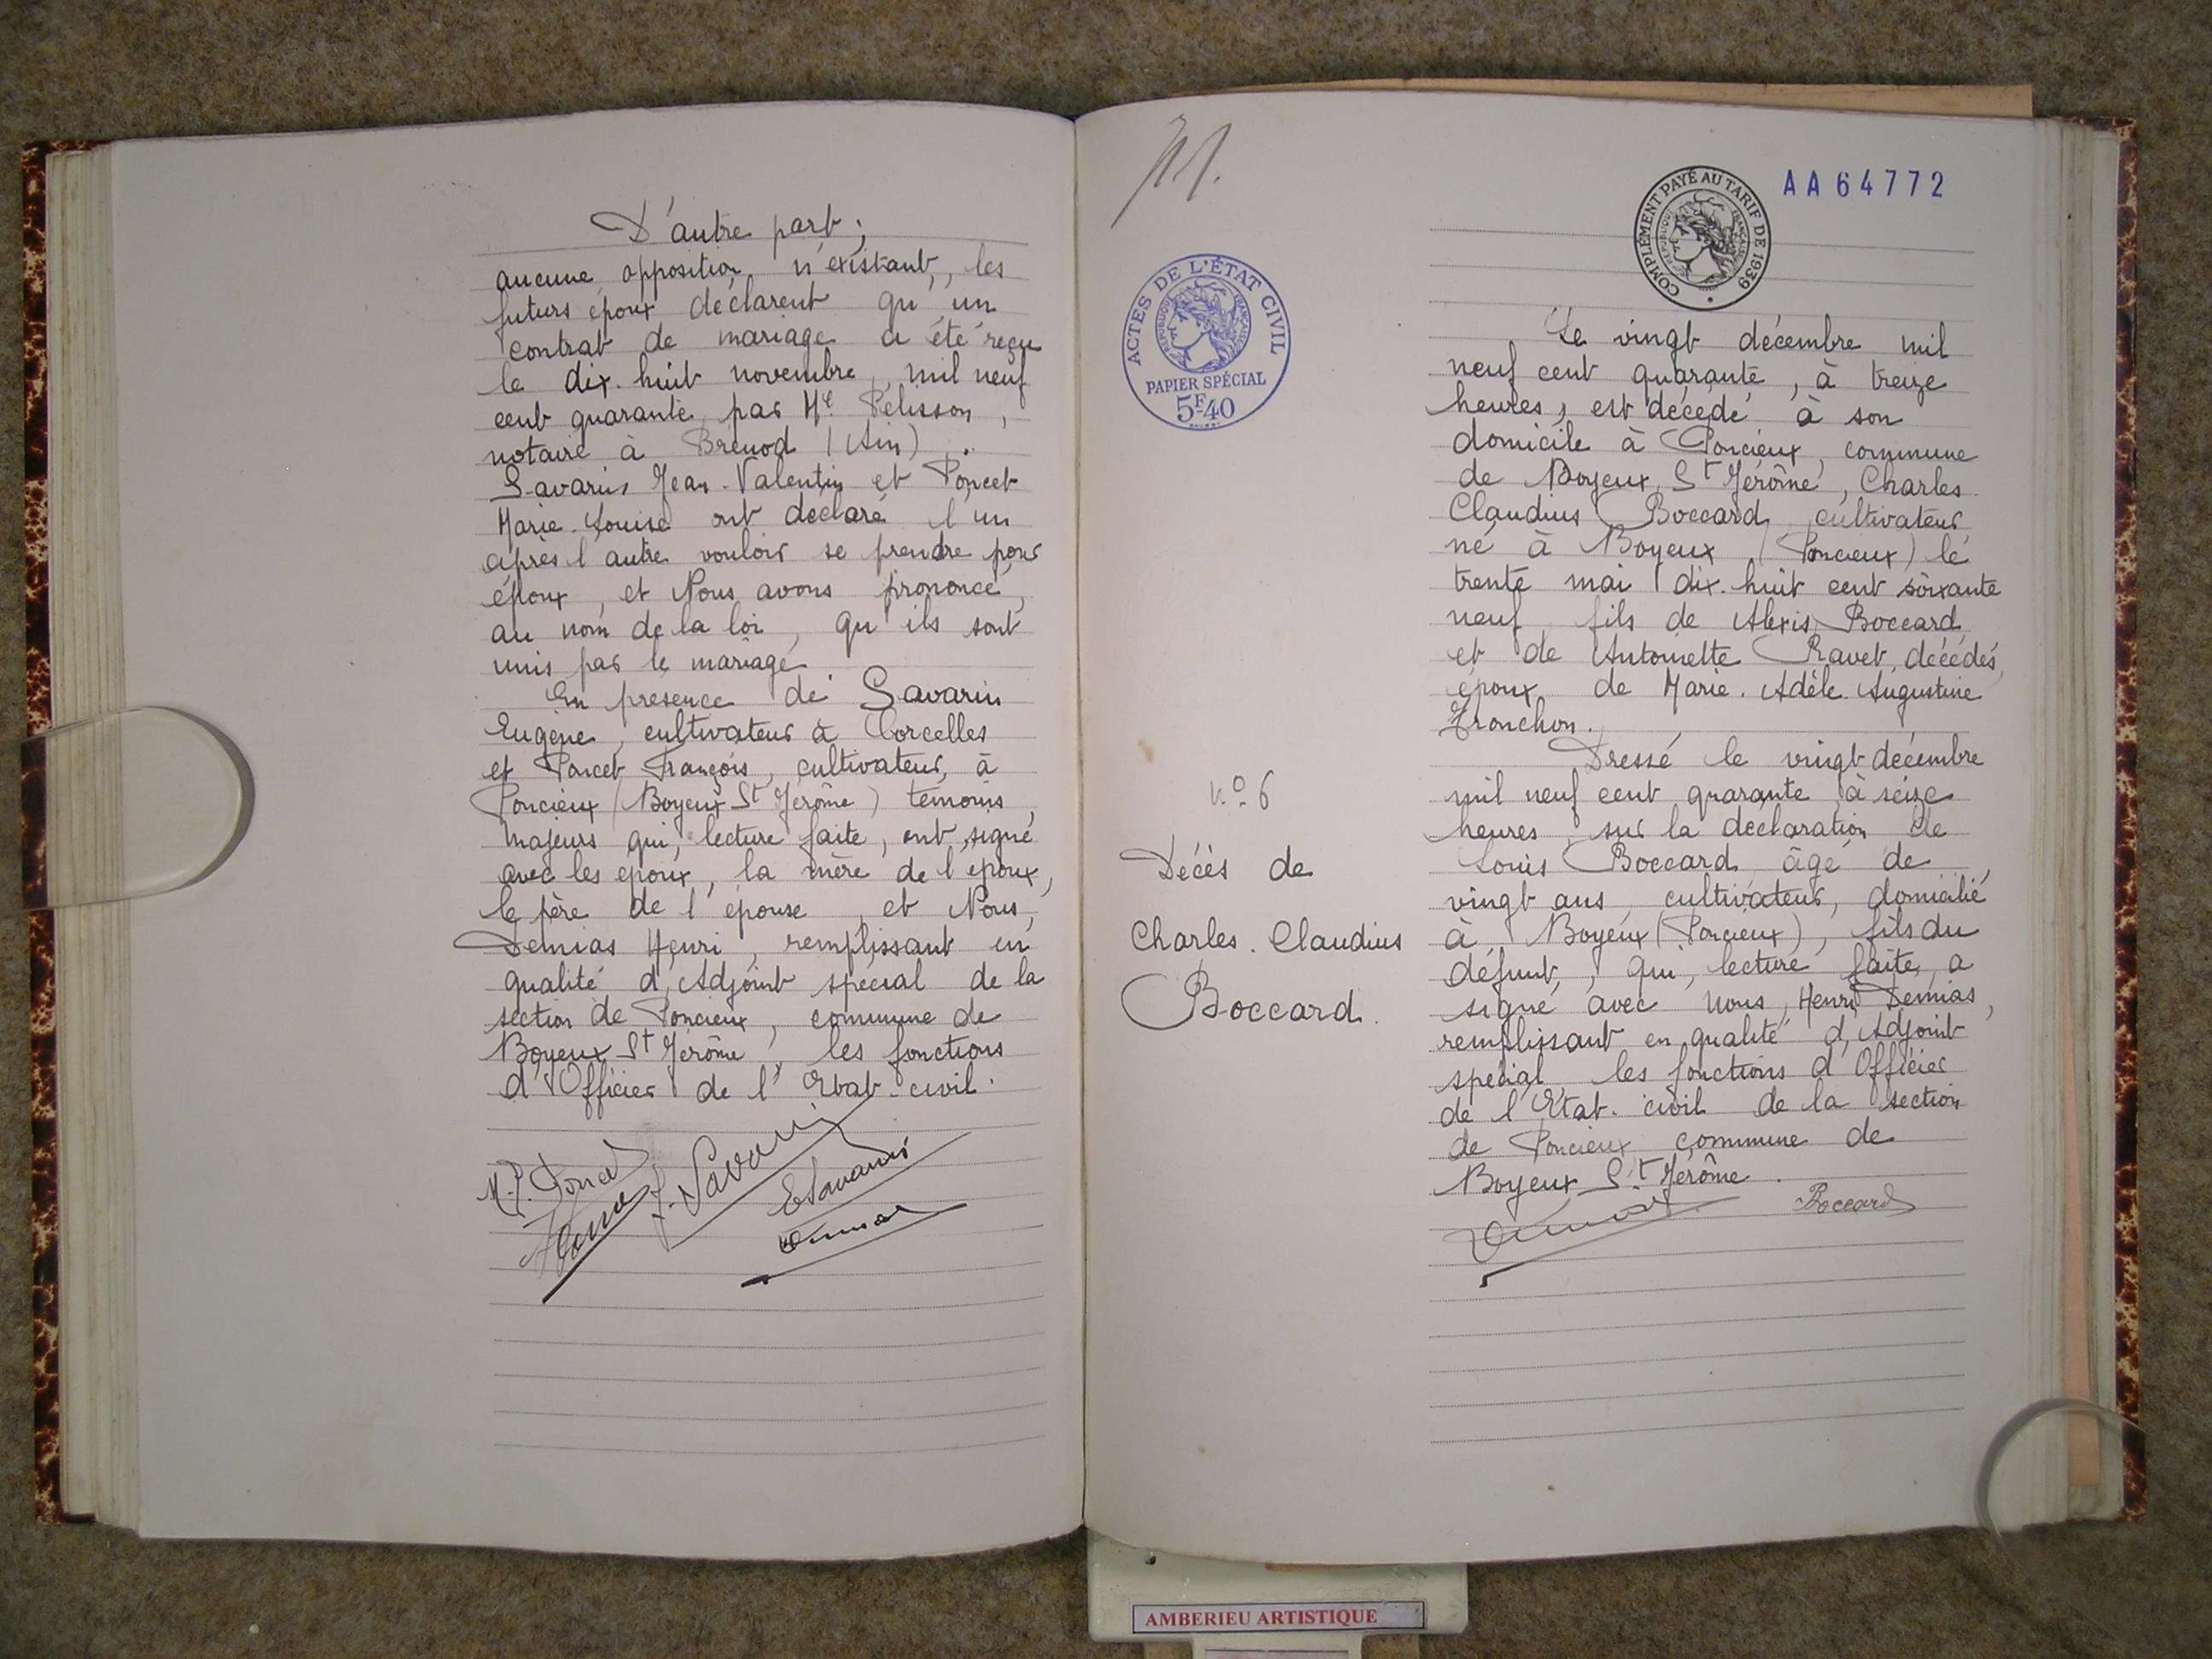 D'autre part ;
aucune opposition n'existant, les
futurs époux déclarent qu'un
contrat de mariage a été reçu
le dix-huit novembre, mil neuf
cent quarante, par Me Pélisson,
notaire à Brénod (Ain).
Savarin Jean-Valentin et Poncet
Marie-Louise ont déclaré l'un
après l'autre vouloir se prendre pour
époux, et Nous avons prononcé,
au nom de la loi, qu'ils sont
unis par le mariage
En présence de Savarin
Eugène, cultivateur à Corcelles
et Poncet François, cultivateur, à
Poncieux (Boyeux St Jérôme) témoins,
majeurs qui, lecture faite, ont signé
avec les époux, la mère de l'époux,
le père de l'épouse, et Nous,
Demias Henri, remplissant en
qualité d'Adjoint spécial de la
section de Poncieux, commune de
Boyeux St Jérôme, les fonctions
d'Officier de l'Etat-civil.
J. Savarin
E Savarin
Demias
COMPLÉMENT PAYÉ AU TARIF DE 1939
REPUBLIQUE FRANÇAISE
AA64772
ACTES DE L'ÉTAT CIVIL
REPUBLIQUE FRANÇAISE
PAPIER SPÉCIAL
5F40
N° 6
Décès de
Charles. Claudius
Boccard.
Le vingt décembre mil
neuf cent quarante, à treize
heures, est décédé à son
domicile à Poncieux, commune
de Boyeux St Jérôme, Charles.
Claudius Boccard, cultivateur
né à Boyeux (Poncieux) le
trente mai dix-huit cent soixante
neuf fils de Alexis Boccard
et de Antoinette Ravet, décédés,
époux de Marie. Adèle. Augustine
Tronchon.
Dressé le vingt décembre
mil neuf cent quarante à seize
heures, sur la déclaration de
Louis Boccard âgé de
vingt ans, cultivateur, domicilié
à Boyeux (Poncieux), fils du
défunt, qui, lecture faite, a
signé avec nous, Henri Demias,
remplissant en qualité d'Adjoint
spécial, les fonctions d'Officier
de l'Etat-civil de la section
de Poncieux commune de
Boyeux St Jérôme.
Demias
Boccard
AMBERIEU ARTISTIQUE